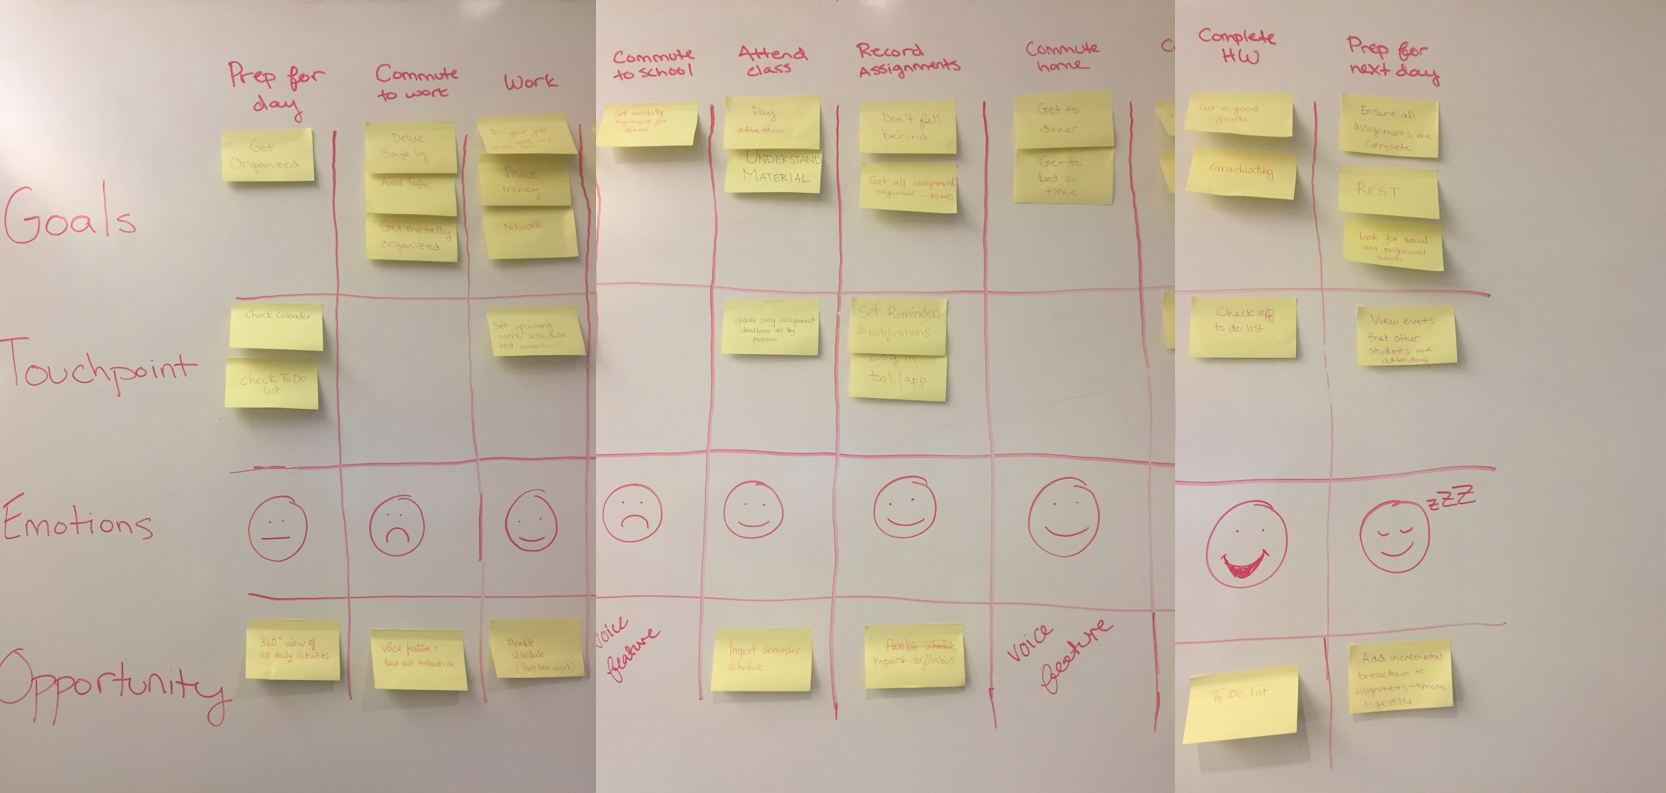 Prep for
day
Commute
to work
Work
Commute
to school
Attend
class
Record
Assignments
Commute
home
C
Complete
HW
Prep for
next day
Goals
Get
Organized
Drive
Safely
Avoid Traffic
Get mentally
organized
Do your job
Make
money
Network
Get mentally
organized for
school
Pay
attention
UNDERSTAND
MATERIAL
Don't fall
behind
Get all assignment
organized
Get to
dinner
Get to
bed on
time
Get a good
grade
Graduating
Ensure all
assignments are
complete
REST
Look for social
and professional
events
Touchpoint
Check Calender
Check To Do
list
Set upcoming
work schedule
and
update any assignment
deadlines set by
professor
Set Reminders
& notifications
Log in
tool/app
Check off
to do list
View events
that other
students are
attending
Emotions
zzZZ
Opportunity
360° view of
all daily activities
voice feature:
Read out
Flexible
Schedule
voice
feature
Import Semester
schedule
Flexible schedule
import syllabus
voice
feature
To Do List
Add incremental
breakdown to
assignments → more
digestible